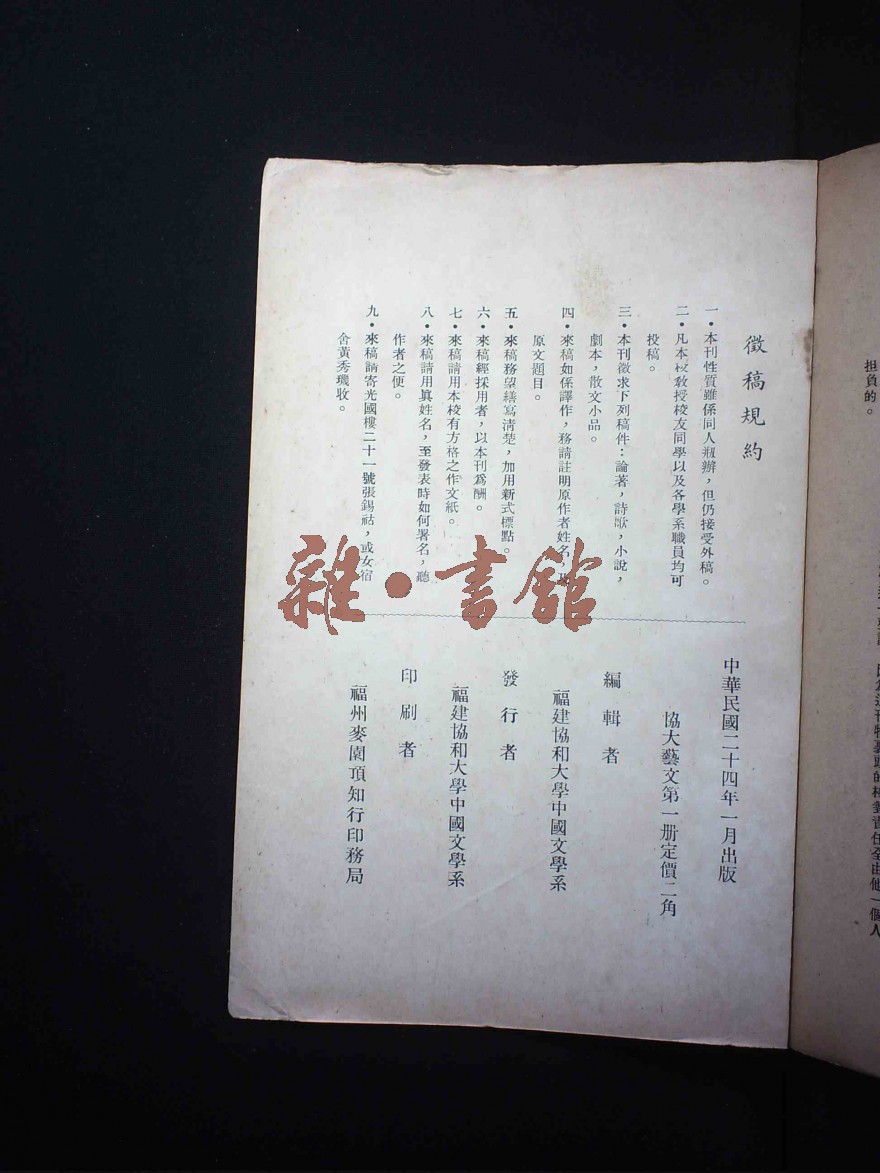 擔負的。
徵稿規約
一・本刊性質雖係同人瓶辦，但仍接受外稿。
二・凡本校教授校友同學以及各學系職員均可
投稿。
三・本刊徵求下列稿件：論著，詩歌，小說，
劇本，散文小品。
四・來稿如係譯作，務請註明原作者姓名，及
原文題目。
五・來稿務望繕寫清楚，加用新式標點。
六・來稿經採用者，以本刊爲酬。
七・來稿請用本校有方格之作文紙。
八・來稿請用眞姓名，至發表時如何署名，聽
作者之便。
九・來稿請寄光國樓二十一號張錫祜，或女宿
舍黃秀璣收。
中華民國二十四年一月出版
協大藝文第一册定價二角
編輯者
福建協和大學中國文學系
發行者
福建協和大學中國文學系
印刷者
福州麥園頂知行印務局
雜・書館